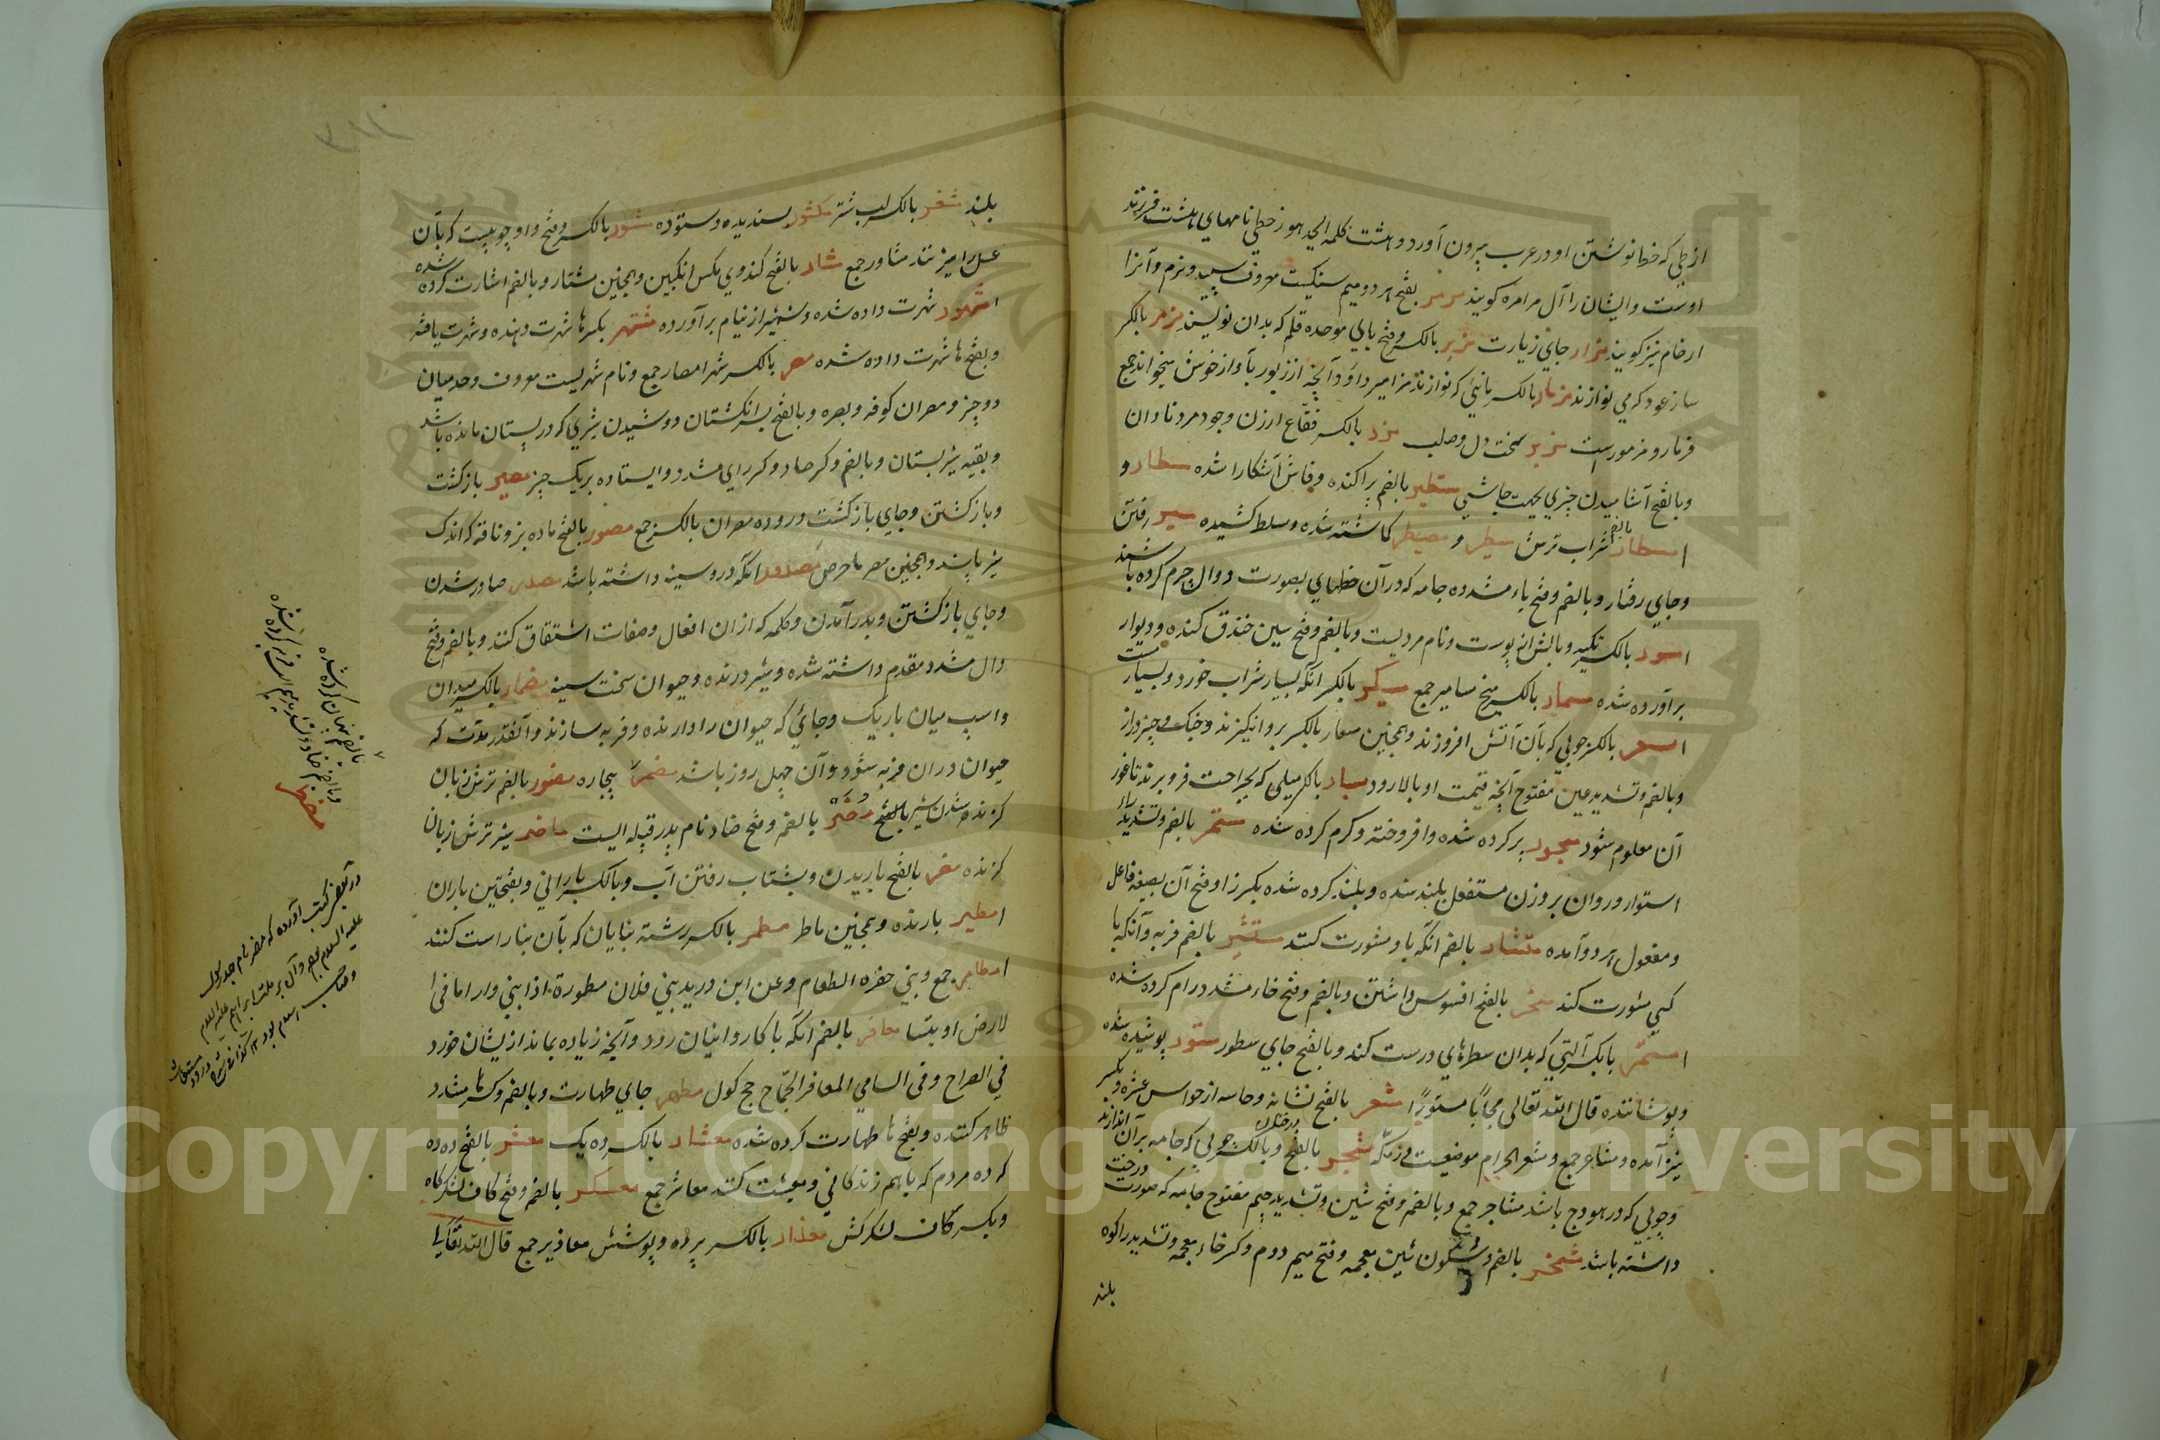 از طی که خط نوشتن او در عرب بیرون آورد و هشت کلمه ابجد هوز حطی نامهای هشت فرزند
اوست و ایشان را آل مرامره کویند مرمر بفتح هر دو میم سنکیست معروف سپید و نرم و آنرا
رخام نیز کویند مزار جای زیارت مزبر بالکسر و فتح بای موحده قلم که بدان نویسند مزهر بالکسر
ساز عود که می نوازند مزمار بالکسر نایی که نوازند مزامیر داود آنچه از زبور بآواز خوش میخواند جمع
مزمار و مزمور است مزیر سخت دل و صلب مزر بالکسر فقاع ارزن و جو و مرد نادان
و بالفتح آشامیدن چیزی بجهت چاشنی مستطیر بالضم پراکنده و فاش آشکارا شده مسطار و
مسطار بالضم شراب ترش مسیطر و مصیطر کماشته شده و مسلط کشیده مسیر رفتن
و جای رفتار و بالضم و فتح یاء مشدده جامه که در آن خطهای بصورت دوال چرم کرده باشند
مسور بالکسر تکیه و بالش از پوست و نام مردیست و بالضم و فتح سین خندق کنده و دیوار
برآورده شده مسمار بالکسر میخ مسامیر جمع مسکیر بالکسر آنکه بسیار شراب خورد و بسیار مست
مسعر بالکسر چوبی که بآن آتش افروزند و همچنین مسعار بالکسر برانکیزنده جنک و چیز دراز
و بالضم و تشدید عین مفتوح آنچه قیمت او بالا رود مسبار بالکسر میلی که بجراحت فرو برند تا غور
آن معلوم شود مسجور پر کرده شده و افروخته و کرم کرده شده مستمر بالضم و تشدید راء
استوار و روان بر وزن مستفعل بلند شده و بلند کرده شده بکسر زا و فتح آن بصیغه فاعل
و مفعول هر دو آمده مستشار بالضم آنکه با او مشورت کنند مستشیر بالضم فربه و آنکه با
کسی مشورت کند مسخر بالفتح افسوس داشتن و بالضم و فتح خاء مشدد رام کرده شده
مسطر بالکسر آلتی که بدان سطرهای درست کنند و بالفتح جای سطور مستور پوشیده شده
و پوشاننده قال الله تعالی حجابا مستورا مشعر بالفتح نشانه و حاسه از حواس عشره و بکسر
نیز آمده و مشاعر جمع و مشعر الحرام موضعیست در مکه مشجر بالفتح و بالکسر چوبی که جامه بر آن اندازند
و چوبی که در هودج باشد مشاجر جمع و بالضم و فتح شین و تشدید جیم مفتوح جامه که صورت درخت
داشته باشد مشمخر بالضم و سکون شین معجمه و فتح میم دوم و کسر خاء معجمه و تشدید را کوه
بلند
بلند مشفر بالکسر لب شتر مشکور پسندیده و ستوده مشور بالکسر و فتح واو چوبیست که بآن
عسل را میزنند مشاور جمع مشار بالفتح کندوی مکس انکبین و همچنین مشتار و بالضم اشارت کرده شده
مشهور شهرت داده شده و شمشیر از نیام برآورده مشتهر بکسر ها شهرت دهنده و شهرت یافته
و بفتح ها شهرت داده شده مصر بالکسر شهر امصار جمع و نام شهریست معروف و حد میان
دو چیز و مصران کوفه و بصره و بالفتح بسر انکشتان دوشیدن شیری که در پستان مانده باشد
و بقیه شیر پستان و بالضم و کسر صاد و کسر رای مشدد و ایستاده بر یک چیز مصیر بازکشت
و بازکشتن و جای بازکشت و روده مصران بالکسر جمع مصور بالفتح ماده بز و ناقه که اندک
شیر باشد و همچنین مصر ماحرض مصدور آنکه درد سینه داشته باشد مصدر صادر شدن
و جای بازکشتن و بدر آمدن و کلمه که از ان افعال و صفات اشتقاق کنند و بالضم و فتح
دال مشدد مقدم داشته شده و شیر درنده و حیوان سخت سینه مضمار بالکسر میدان
و اسپ میان باریک و جائی که حیوان را دارنده و فربه سازند و آنقدر مدت که
حیوان در ان فربه شود و آن چهل روز باشد مضطر بیچاره مضور بالضم ترش زبان
کزنده شدن شیر بالفتح مضر بالضم و فتح ضاد نام پدر قبیله ایست ماضر شیر ترش زبان
کزنده مطر بالفتح باریدن و بشتاب رفتن آب و بالکسر بارانی و بفتحتین باران
مطیر بارنده و همچنین ماطر مطمر بالکسر رشته بنایان که بآن بنا راست کنند
مطامیر جمع و بنی حفره الطعام و عن ابن درید بنی فلان مطمورة اذا بنی دارا ما فی ا
لارض او بیتا معافر بالضم آنکه با کاروانیان رود و آنچه زیاده بماند از ایشان خورد
فی الصراح و فی السامی المعافر الحجاج حج کول مطهر جای طهارت و بالضم و کسر ها مشدد
ظاهر کننده و بفتح ها طهارت کرده شده معشار بالکسر ده یک معشر بالفتح ده ده
که ده مردم که باهم زندکانی و معیشت کنند معاشر جمع معسکر بالضم و فتح کاف لشکرکاه
و بکسر کاف لشکرکش معذار بالکسر پرده و پوشش معاذیر جمع قال الله تعالی
مضطر
بالضم پنهان کرده شده
در بعض کتب آورده که مضر نام جد رسول
علیه السلام
Copyright © King Saud University